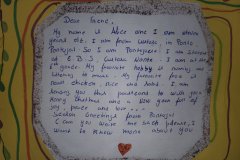 Dear friend,
My name is Alice and I am eleven
years old. I am from in Porto
Portugal. So I am Portuguese. I am student
at E.B.S. I am at the
6th grade. My favorite hobby is
listening to music. My favorite food is
and chicken, rice and I am
sending you this postcard to wish you a
Merry Christmas and a New Year full of
joy peace and love...
Season Greetings from Portugal
Can you write me back please, I
want to know more about you